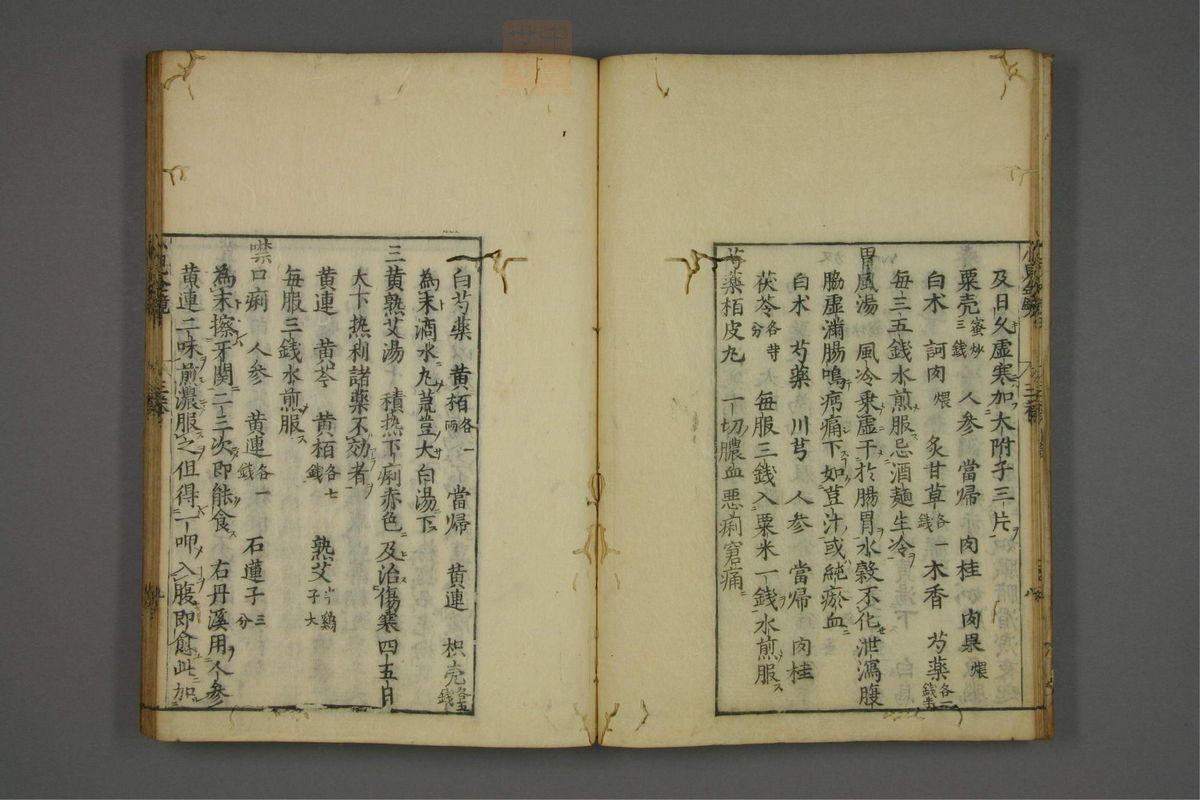 及日久虚寒加大附子三片
粟壳蜜炒三錢 人参 當帰 肉桂 肉果煨
白术 訶肉煨 炙甘草各一錢 木香 芍薬各一錢半
毎三五錢水煎服忌酒麺生冷
胃風湯 風冷乗虚干於腸胃水穀不化泄瀉腹
脇虚満腸鳴㽲痛下如荳汁或純瘀血
白术 芍薬 川芎 人参 當帰 肉桂
茯苓各等分 毎服三錢入粟米一錢水煎服
芍薬栢皮丸 一切膿血悪痢窘痛
白芍薬 黄栢各一兩 當帰 黄連 枳壳各五錢
為末滴水丸荳大白湯下
三黄熟艾湯 積熱下痢赤色及治傷寒四五日
大下熱利諸薬不効者
黄連 黄芩 黄栢各七錢 熟艾半鷄子大
毎服三錢水煎服
噤口痢 人参 黄連各一錢 石蓮子三分
為末擦牙関二三次即能食 右丹溪用人参
黄連二味煎濃服之但得一呷入腹即愈此加